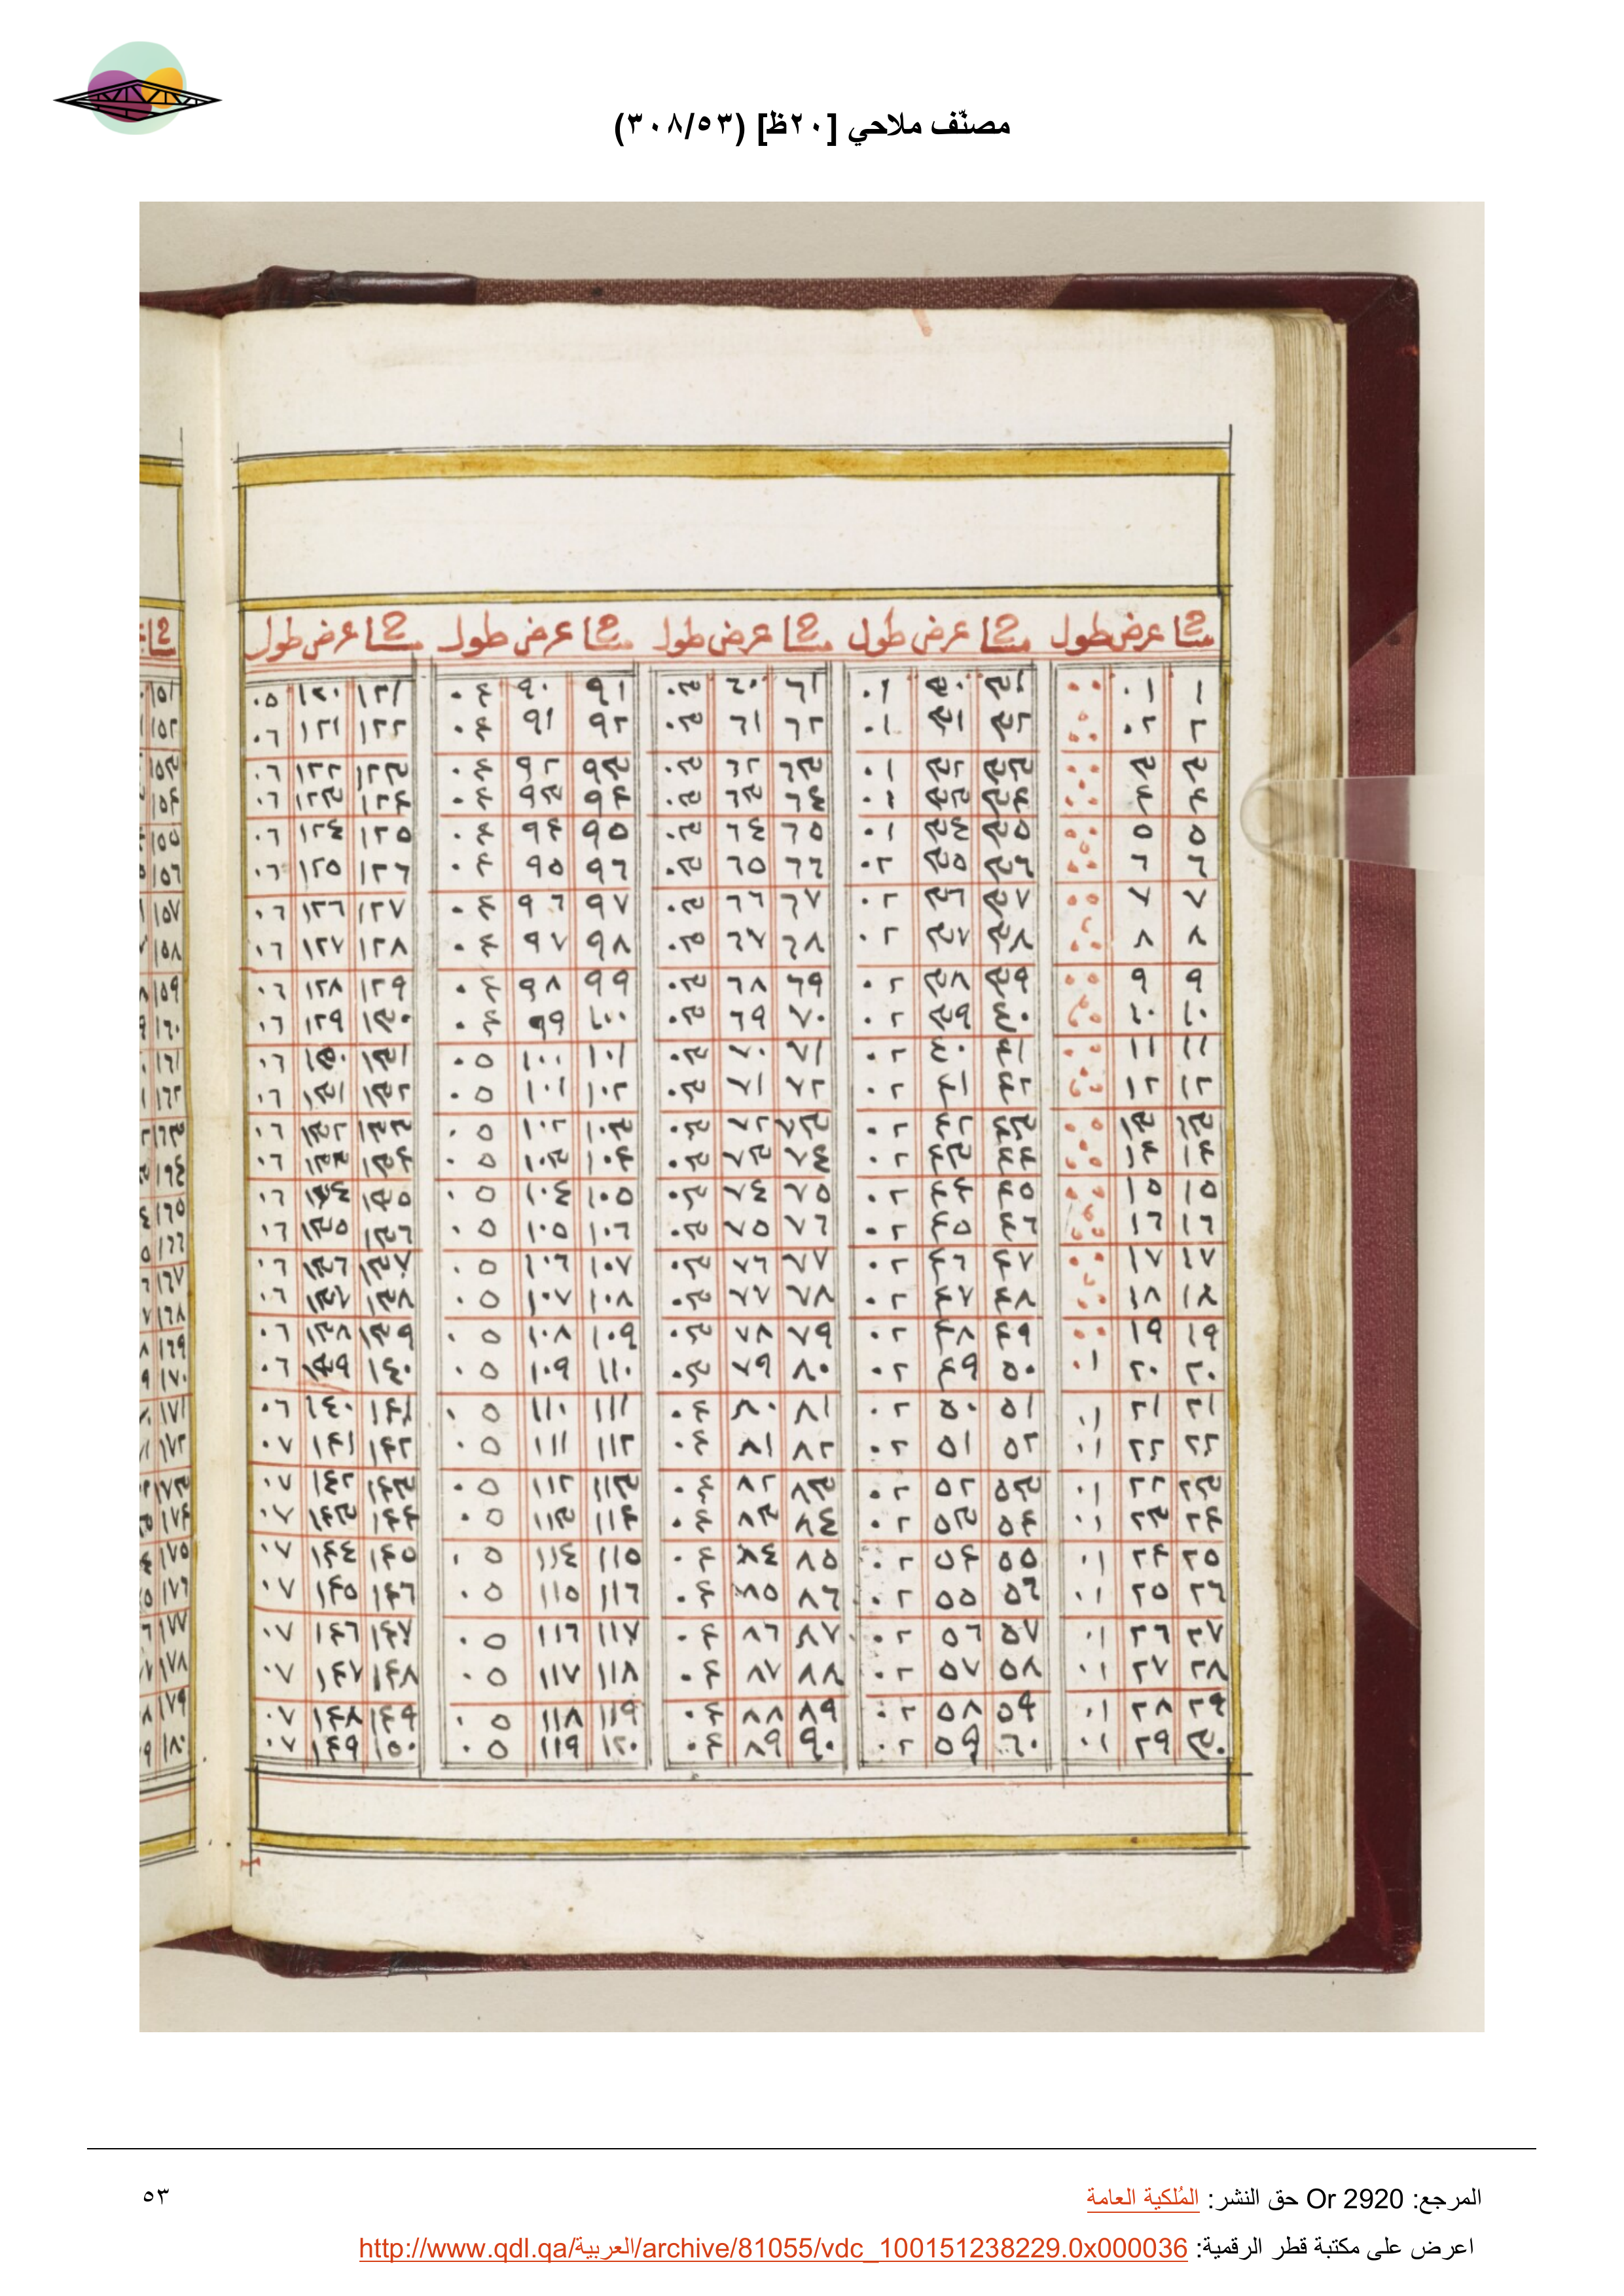 مصنّف ملاحي [٢٠ظ] (٣٠٨/٥٣)
عرض طول عرض طول عرض طول عرض طول عرض طول
١ ٠١ ٠٠ ٣١ ٣٠ ٠١ ٦١ ٦٠ ٠٣ ٩١ ٩٠ ٠٤ ١٢١ ١٢٠ ٠٥ ١٥١
٢ ٠٢ ٠٠ ٣٢ ٣١ ٠١ ٦٢ ٦١ ٠٣ ٩٢ ٩١ ٠٤ ١٢٢ ١٢١ ٠٦ ١٥٢
٣ ٣ ٠٠ ٣٣ ٣٢ ٠١ ٦٣ ٦٢ ٠٣ ٩٣ ٩٢ ٠٤ ١٢٣ ١٢٢ ٠٦ ١٥٣
٤ ٤ ٠٠ ٣٤ ٣٣ ٠١ ٦٤ ٦٣ ٠٣ ٩٤ ٩٣ ٠٤ ١٢٤ ١٢٣ ٠٦ ١٥٤
٥ ٥ ٠٠ ٣٥ ٣٤ ٠١ ٦٥ ٦٤ ٠٣ ٩٥ ٩٤ ٠٤ ١٢٥ ١٢٤ ٠٦ ١٥٥
٦ ٦ ٠٠ ٣٦ ٣٥ ٠٢ ٦٦ ٦٥ ٠٣ ٩٦ ٩٥ ٠٤ ١٢٦ ١٢٥ ٠٦ ١٥٦
٧ ٧ ٠٠ ٣٧ ٣٦ ٠٢ ٦٧ ٦٦ ٠٣ ٩٧ ٩٦ ٠٤ ١٢٧ ١٢٦ ٠٦ ١٥٧
٨ ٨ ٠٠ ٣٨ ٣٧ ٠٢ ٦٨ ٦٧ ٠٣ ٩٨ ٩٧ ٠٤ ١٢٨ ١٢٧ ٠٦ ١٥٨
٩ ٩ ٠٠ ٣٩ ٣٨ ٠٢ ٦٩ ٦٨ ٠٣ ٩٩ ٩٨ ٠٤ ١٢٩ ١٢٨ ٠٦ ١٥٩
١٠ ١٠ ٠٠ ٤٠ ٣٩ ٠٢ ٧٠ ٦٩ ٠٣ ١٠٠ ٩٩ ٠٤ ١٣٠ ١٢٩ ٠٦ ١٦٠
١١ ١١ ٠٠ ٤١ ٤٠ ٠٢ ٧١ ٧٠ ٠٣ ١٠١ ١٠٠ ٠٥ ١٣١ ١٣٠ ٠٦ ١٦١
١٢ ١٢ ٠٠ ٤٢ ٤١ ٠٢ ٧٢ ٧١ ٠٣ ١٠٢ ١٠١ ٠٥ ١٣٢ ١٣١ ٠٦ ١٦٢
١٣ ١٣ ٠٠ ٤٣ ٤٢ ٠٢ ٧٣ ٧٢ ٠٣ ١٠٣ ١٠٢ ٠٥ ١٣٣ ١٣٢ ٠٦ ١٦٣
١٤ ١٤ ٠٠ ٤٤ ٤٣ ٠٢ ٧٤ ٧٣ ٠٣ ١٠٤ ١٠٣ ٠٥ ١٣٤ ١٣٣ ٠٦ ١٦٤
١٥ ١٥ ٠٠ ٤٥ ٤٤ ٠٢ ٧٥ ٧٤ ٠٣ ١٠٥ ١٠٤ ٠٥ ١٣٥ ١٣٤ ٠٦ ١٦٥
١٦ ١٦ ٠٠ ٤٦ ٤٥ ٠٢ ٧٦ ٧٥ ٠٣ ١٠٦ ١٠٥ ٠٥ ١٣٦ ١٣٥ ٠٦ ١٦٦
١٧ ١٧ ٠٠ ٤٧ ٤٦ ٠٢ ٧٧ ٧٦ ٠٣ ١٠٧ ١٠٦ ٠٥ ١٣٧ ١٣٦ ٠٦ ١٦٧
١٨ ١٨ ٠٠ ٤٨ ٤٧ ٠٢ ٧٨ ٧٧ ٠٣ ١٠٨ ١٠٧ ٠٥ ١٣٨ ١٣٧ ٠٦ ١٦٨
١٩ ١٩ ٠٠ ٤٩ ٤٨ ٠٢ ٧٩ ٧٨ ٠٣ ١٠٩ ١٠٨ ٠٥ ١٣٩ ١٣٨ ٠٦ ١٦٩
٢٠ ٢٠ ٠١ ٥٠ ٤٩ ٠٢ ٨٠ ٧٩ ٠٣ ١١٠ ١٠٩ ٠٥ ١٤٠ ١٣٩ ٠٦ ١٧٠
٢١ ٢١ ٠١ ٥١ ٥٠ ٠٢ ٨١ ٨٠ ٠٤ ١١١ ١١٠ ٠٥ ١٤١ ١٤٠ ٠٦ ١٧١
٢٢ ٢٢ ٠١ ٥٢ ٥١ ٠٢ ٨٢ ٨١ ٠٤ ١١٢ ١١١ ٠٥ ١٤٢ ١٤١ ٠٧ ١٧٢
٢٣ ٢٢ ٠١ ٥٣ ٥٢ ٠٢ ٨٣ ٨٢ ٠٤ ١١٣ ١١٢ ٠٥ ١٤٣ ١٤٢ ٠٧ ١٧٣
٢٤ ٢٣ ٠١ ٥٤ ٥٣ ٠٢ ٨٤ ٨٣ ٠٤ ١١٤ ١١٣ ٠٥ ١٤٤ ١٤٣ ٠٧ ١٧٤
٢٥ ٢٤ ٠١ ٥٥ ٥٤ ٠٢ ٨٥ ٨٤ ٠٤ ١١٥ ١١٤ ٠٥ ١٤٥ ١٤٤ ٠٧ ١٧٥
٢٦ ٢٥ ٠١ ٥٦ ٥٥ ٠٢ ٨٦ ٨٥ ٠٤ ١١٦ ١١٥ ٠٥ ١٤٦ ١٤٥ ٠٧ ١٧٦
٢٧ ٢٦ ٠١ ٥٧ ٥٦ ٠٢ ٨٧ ٨٦ ٠٤ ١١٧ ١١٦ ٠٥ ١٤٧ ١٤٦ ٠٧ ١٧٧
٢٨ ٢٧ ٠١ ٥٨ ٥٧ ٠٢ ٨٨ ٨٧ ٠٤ ١١٨ ١١٧ ٠٥ ١٤٨ ١٤٧ ٠٧ ١٧٨
٢٩ ٢٨ ٠١ ٥٩ ٥٨ ٠٢ ٨٩ ٨٨ ٠٤ ١١٩ ١١٨ ٠٥ ١٤٩ ١٤٨ ٠٧ ١٧٩
٣٠ ٢٩ ٠١ ٦٠ ٥٩ ٠٢ ٩٠ ٨٩ ٠٤ ١٢٠ ١١٩ ٠٥ ١٥٠ ١٤٩ ٠٧ ١٨٠
المرجع: Or 2920 حق النشر: المُلكية العامة ٥٣
اعرض على مكتبة قطر الرقمية: http://www.qdl.qa/العربية/archive/81055/vdc_100151238229.0x000036